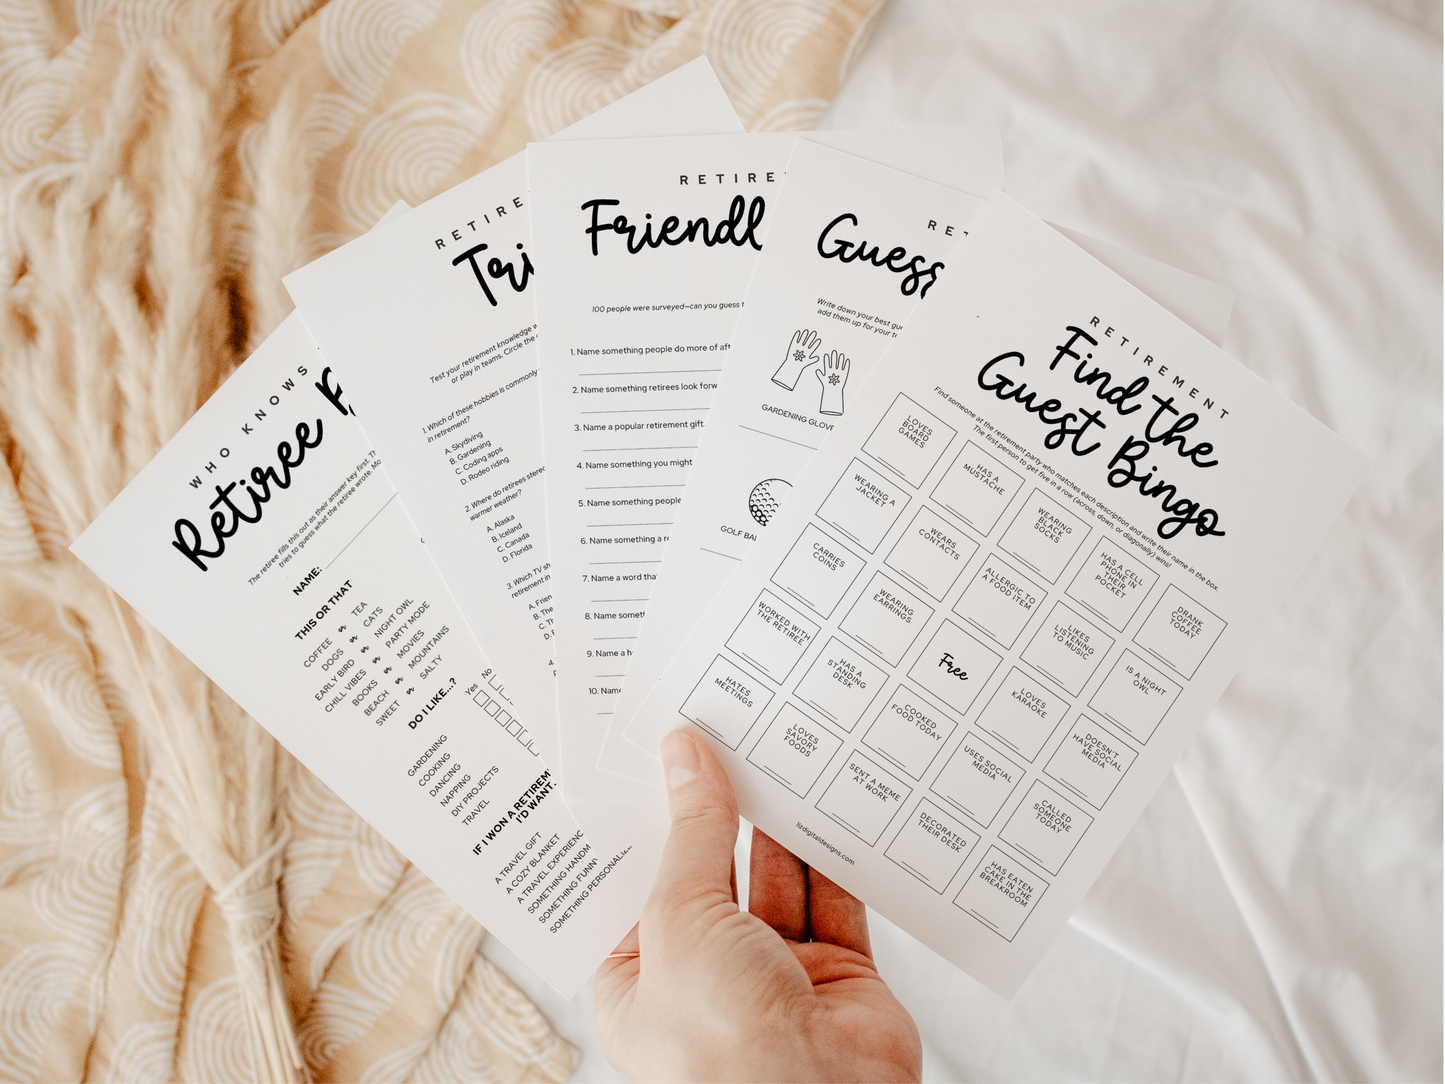 WHO KNOWS
Retiree
The retiree fills this out as their answer key first.
tries to guess what the retiree wrote.
NAME:
THIS OR THAT
COFFEE or TEA
DOGS or CATS
EARLY BIRD or NIGHT OWL
CHILL VIBES or PARTY MODE
BOOKS or MOVIES
BEACH or MOUNTAINS
SWEET or SALTY
DO I LIKE...?
Yes No
GARDENING
COOKING
DANCING
NAPPING
DIY PROJECTS
TRAVEL
IF I WON A RETIREM
I'D WANT.
A TRAVEL GIFT
A COZY BLANKET
A TRAVEL EXPERIENC
SOMETHING HANDM
SOMETHING FUNN
SOMETHING PERSONALI
RETIRE
Tri
Test your retirement knowledge
or play in teams. Circle the
1. Which of these hobbies is commonly
in retirement?
A. Skydiving
B. Gardening
C. Coding apps
D. Rodeo riding
2. Where do retirees stereo
warmer weather?
A. Alaska
B. Iceland
C. Canada
D. Florida
3. Which TV sh
retirement in
A. Frien
B. The
C. Th
D. F
4.
RETIRE
Friendl
100 people were surveyed—can you guess
1. Name something people do more of aft
2. Name something retirees look forw
3. Name a popular retirement gift.
4. Name something you might
5. Name something people
6. Name something a re
7. Name a word tha
8. Name somet
9. Name a h
10. Name
RET
Guess
Write down your best gue
add them up for your to
GARDENING GLOV
GOLF BAL
RETIREMENT
Find the
Guest Bingo
Find someone at the retirement party who matches each description and write their name in the box.
The first person to get five in a row (across, down, or diagonally) wins!
LOVES
BOARD
GAMES
HAS A
MUSTACHE
WEARING
BLACK
SOCKS
HAS A CELL
PHONE IN
THEIR
POCKET
DRANK
COFFEE
TODAY
WEARING A
JACKET
WEARS
CONTACTS
ALLERGIC TO
A FOOD ITEM
LIKES
LISTENING
TO MUSIC
IS A NIGHT
OWL
CARRIES
COINS
WEARING
EARRINGS
Free
LOVES
KARAOKE
DOESN'T
HAVE SOCIAL
MEDIA
WORKED WITH
THE RETIREE
HAS A
STANDING
DESK
COOKED
FOOD TODAY
USES SOCIAL
MEDIA
CALLED
SOMEONE
TODAY
HATES
MEETINGS
LOVES
SAVORY
FOODS
SENT A MEME
AT WORK
DECORATED
THEIR DESK
HAS EATEN
CAKE IN THE
BREAKROOM
lizdigitaldesigns.com